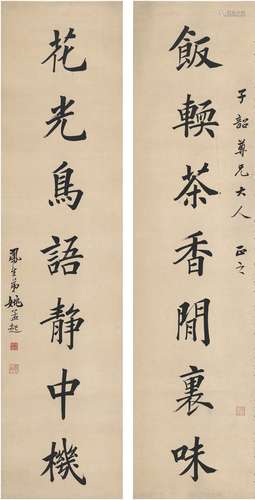 子韶尊兄大人正之
飯輭茶香閒裏味
花光鳥語靜中機
鳳生弟姚孟起